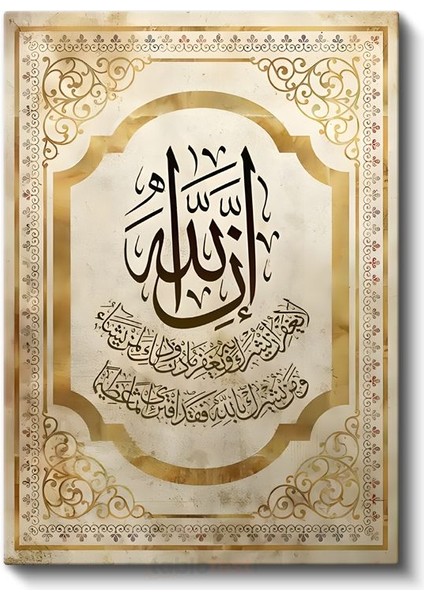 إن الله
لا يغفر أن يشرك به ويغفر ما دون ذلك لمن يشاء
ومن يشرك بالله فقد افترى إثما عظيما